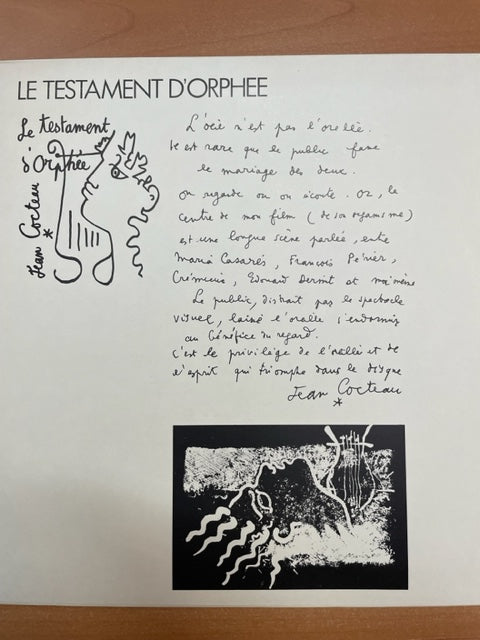 LE TESTAMENT D'ORPHEE
Le testament
d'Orphée
Jean Cocteau
*
L'œil n'est pas l'oreille.
Il est rare que le public fasse
le mariage des deux.
On regarde ou on écoute. Or, le
centre de mon film (de son organisme)
est une longue scène parlée, entre
Maria Casarès, François Périer,
Crémieux, Edouard Dermit et moi-même
Le public, distrait par le spectacle
visuel, laisse l'oreille s'endormir
au bénéfice du regard.
C'est le privilège de l'oreille et de
l'esprit qui triomphe dans le disque
Jean Cocteau
*